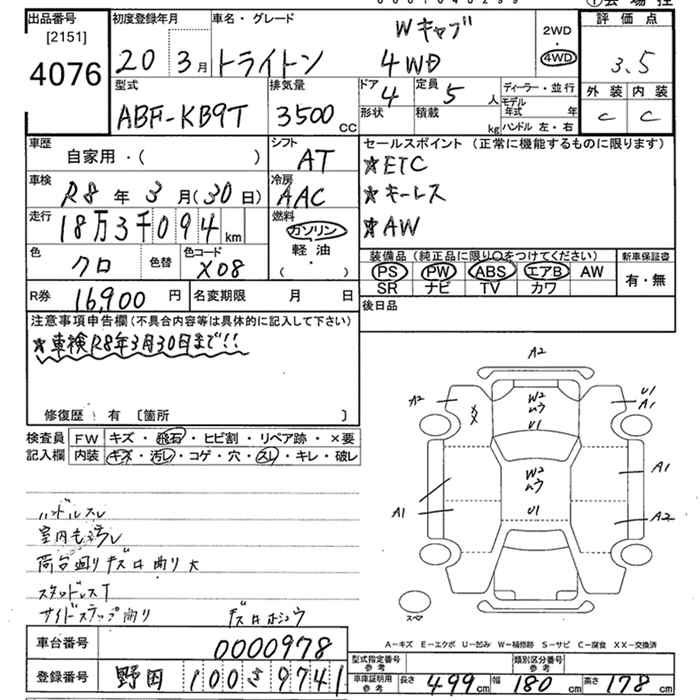 出品番号 初度登録年月 車名・グレード Wキャブ 2WD 4WD 評価点
[2151]
4076 20 3月 トライトン 4WD 3.5
型式 ABF-KB9T 排気量 3500 CC
ドア 4 定員 5 人 ディーラー・並行
形状 積載 kg モデル年式 年 ハンドル 左・右
外装 内装
C C
車歴 自家用・( ) シフト AT
車検 R8年3月(30日) 冷房 AAC
走行 18万3千094km 燃料 ガソリン
軽油
( ・ )
色 クロ 色替 色コード X08
R券 16,900円 名変期限 月 日
セールスポイント (正常に機能するものに限ります)
★ETC
★キーレス
★AW
装備品(純正品に限り○をつけてください) 新車保証書
PS PW ABS エアB AW 有・無
SR ナビ TV カワ
後日品
注意事項申告欄(不具合内容等は具体的に記入して下さい)
★車検R8年3月30日まで!!
修復歴:有 [箇所 ]
検査員 FW キズ・飛石・ヒビ割・リペア跡・×要
記入欄 内装 キズ・汚レ・コゲ・穴・スレ・キレ・破レ
ハンドルスレ
室内も汚レ
荷台廻りキズ凹曲り大
スタッドレスT
サイドステップ曲り キズ凹ホシュウ
A2
A2 W2 U1
XX ムラ A1
U1
W2 A1
ムラ
A1 U1 A2
スペア
A-キズ E-エクボ U-凹み W-補修跡 S-サビ C-腐食 XX-交換済
車台番号 0000978
登録番号 野田 100 さ 9741
型式指定番号 参考 類別区分番号 参考
車庫証明用 参考 長さ 499cm 幅 180cm 高さ 178cm